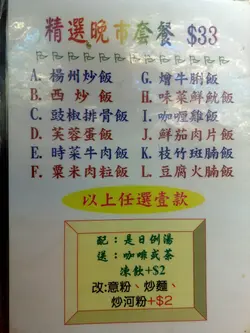 精選晚市套餐 $33
A. 楊州炒飯
B. 西炒飯
C. 豉椒排骨飯
D. 芙蓉蛋飯
E. 時菜牛肉飯
F. 粟米肉粒飯
G. 燴牛脷飯
H. 味菜鮮魷飯
I. 咖喱雞飯
J. 鮮茄肉片飯
K. 枝竹斑腩飯
L. 豆腐火腩飯
以上任選壹款
配：是日例湯
送：咖啡或茶
凍飲+$2
改:意粉、炒麵、
炒河粉+$2